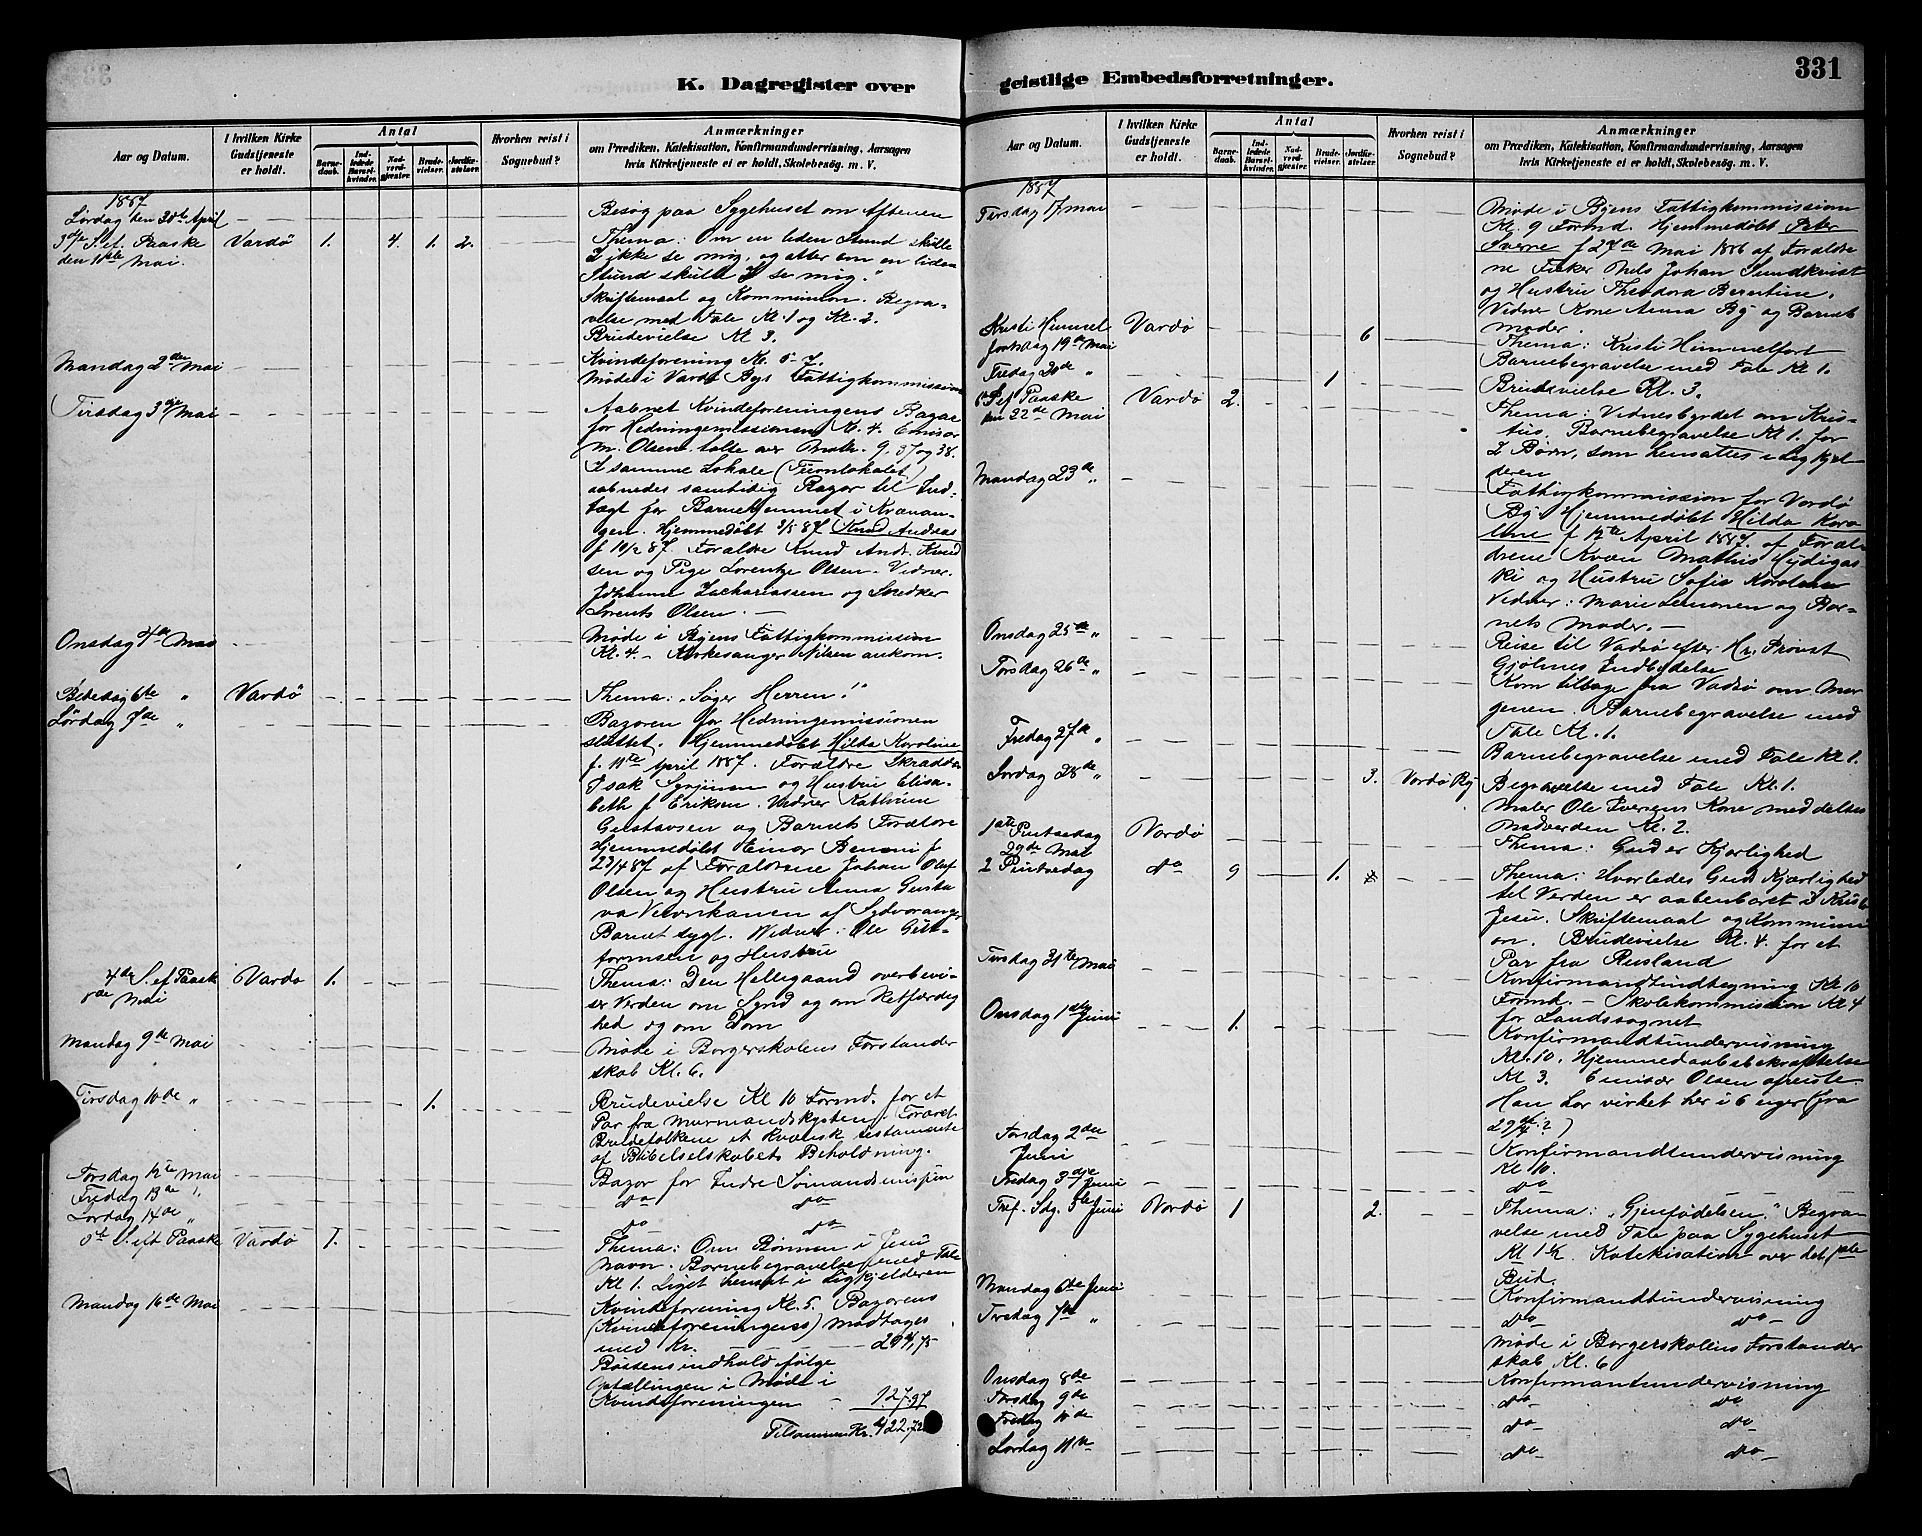 K. Dagregister over
Aar og Datum.
I hvilken Kirke Gudstjeneste er holdt.
Antal
Barnedaab.
Indledede Barselkvinder.
Nadverdgjester.
Brudevielser.
Jordfæstelser.
Hvorhen reist i Sognebud?
Anmærkninger
om Prædiken, Katekisation, Konfirmandundervisning, Aarsagen
hvis Kirketjeneste ei er holdt, Skolebesøg. m. V.
1887
Lørdag den 30te April
Besøg paa Sygehuset om Aftenen
3die S. ef. Paaske Vardø 1. 4. 1. 2.
den 1ste Mai.
Thema: Om en liden Stund skulle
I ikke se mig, og atter om en liden
Stund skulle I se mig."
Skriftemaal og Kommunion. Begra-
velse med Tale Kl. 1 og Kl. 2.
Brudevielse Kl 3.
Mandag 2den Mai
Kvindeforening Kl. 5-7.
Møde i Vardø Bys Fattigkommission
Tirsdag 3die Mai
Aabnet Kvindeforeningens Bazar
for Hedningemissionen Kl. 4. Emisær
M. Olsen talte over Math. 9, 37 og 38.
I samme Lokale (Turnlokalet)
aabnedes samtidig Bazar til Ind-
tægt for Barnehjemmet i Kvænan-
gen. Hjemmedøbt 3/5 87 Knud Andreas
f 10/2 87. Forældre Knud Andr. Knud
sen og Pige Lorentze Olsen. Vidner.
Johanne Zachariassen og Snedker
Lorents Olsen. —
Onsdag 4de Mai
Møde i Byens Fattigkommission
Kl. 4. – Kirkesanger Nilsen ankom.
Bededag 6te " Vardø
Thema: „Søger Herren!"
Lørdag 7de "
Bazaren for Hedningemissionen
sluttet. Hjemmedøbt Hilda Karoline
f. 11te April 1887. Forældre Skrædder
Isak og Hustru Elisa-
beth f Eriksen. Vidner Kathrine
Gustavsen og Barnets Forældre
Hjemmedøbt Einar Benoni f
23/4 87 af Forældrene Johan Oluf
Olsen og Hustru Anna Gusta
va af Sydvaranger
Barnet sygt. Vidner: Ole
og Hustru
4de S. ef Paask Vardø 1.
8de Mai
Thema: Den Helligaand overbevi-
ser Verden om Synd og om Retfærdig
hed og om Dom
Mandag 9de Mai
Møde i Borgerskolens Forstander
skab Kl. 6.
Tirsdag 10de " 1.
Brudevielse Kl 10 Formd. for et
Par fra Murmandskysten. Foræret
Brudefolkene et kvænsk testamente
af Bibelselskabets Beholdning.
Torsdag 12te Mai
Bazar for Indre Sømandsmisjon
Fredag 13de "
do do
Lørdag 14de "
do do
5te S. eft Paaske Vardø 1.
Thema: Om Bønnen i Jesu
Navn. Barnebegravelse med Tale
Kl 1. Liget hensat i Ligkjelderen
Mandag 16de Mai
Kvindeforening Kl. 5. Bazarens
(Kvindeforeningens) modtages
med Kr. 294,75
Bøssens indhold følge
Optællingen i Møde i
Kvindeforeningen – 127.97
Tilsammen Kr. 422.72
geistlige Embedsforretninger.
331
Aar og Datum.
I hvilken Kirke Gudstjeneste er holdt.
Antal
Barnedaab.
Indledede Barselkvinder.
Nadverdgjester.
Brudevielser.
Jordfæstelser.
Hvorhen reist i Sognebud?
Anmærkninger
om Prædiken, Katekisation, Konfirmandundervisning, Aarsagen
hvis Kirketjeneste ei er holdt, Skolebesøg. m. V.
1887
Tirsdag 17 mai
Møde i Byens Fattigkommission
Kl. 9 Formd. Hjemmedøbt Peter
Sverre f 27de Mai 1886 af Forældre
ne Fisker Nels Johan Sundkvist
og Hustru Theodora Berntine.
Vidner Kone Anna By og Barnets
moder.
Kristi Himmel Vardø 6
fartsdag 19de Mai
Thema: Kristi Himmelfart
Barnebegravelse med Tale Kl 1.
Fredag 20de " 1
Brudevielse Kl. 3.
6te S ef Paaske Vardø 2.
den 22de Mai
Thema: Vidnesbyrdet om Kris-
tus. Barnebegravelse Kl 1. for
2 Børn, som hensattes i Ligkjel-
deren
Mandag 23de "
Fattigkommission for Vardø
By. Hjemmedøbt Hilda Karo
line f 12te April 1887. af Foræl-
drene Kvæn Mathis
og Hustru Sofia
Vidner: Marie og Bar-
nets Moder. —
Onsdag 25de "
Reise til Vadsø efter Hr. Provst
Gjølmes Indbydelse
Torsdag 26de "
Kom tilbage fra Vadsø om Mor
genen. Barnebegravelse med
Tale Kl. 1.
Fredag 27de "
Barnebegravelse med Tale Kl 1.
Lørdag 28de " 3. Vardø By
Begravelse med Tale Kl. 1.
Maler Ole Iversens Kone meddeltes
Nadverden Kl. 2.
1ste Pintsedag Vardø
29de Mai
Thema: Gud er Kjærlighed
2 Pintsedag do 9 1.
Thema: Hvorledes Guds Kjærlighed
til Verden er aabenbaret i Kristo
Jesu. Skriftemaal og Kommuni
on. Brudevielse Kl. 4. for et
Par fra Rusland
Tirsdag 31te Mai
Konfirmandtindtegning Kl 10
Formd. – Skolekommission Kl 4
for Landssognet
Onsdag 1ste Juni 1.
Konfirmandtundervisning
Kl. 10. Hjemmedaabsbekræftelse
Kl 3. Emisær Olsen afreiste
Han har virket her i 6 uger (fra
29de/4?)
Torsdag 2den
Juni
Konfirmandtundervisning
Kl 10.
Fredag 3die Juni
do
Tref. Sdg. 5te Juni Vardø 1 2.
Thema: „Gjenfødelsen." Begra-
velse med Tale paa Sygehuset
Kl 1½. Katekisation over det
Bud.
Mandag 6te Juni
Konfirmandtundervisning
Tirsdag 7de "
do do
Møde i Borgerskolens Forstander
skab Kl. 6
Onsdag 8de
Konfirmantundervisning
Torsdag 9de
do do
Fredag 10de
do do
Lørdag 11te
do do